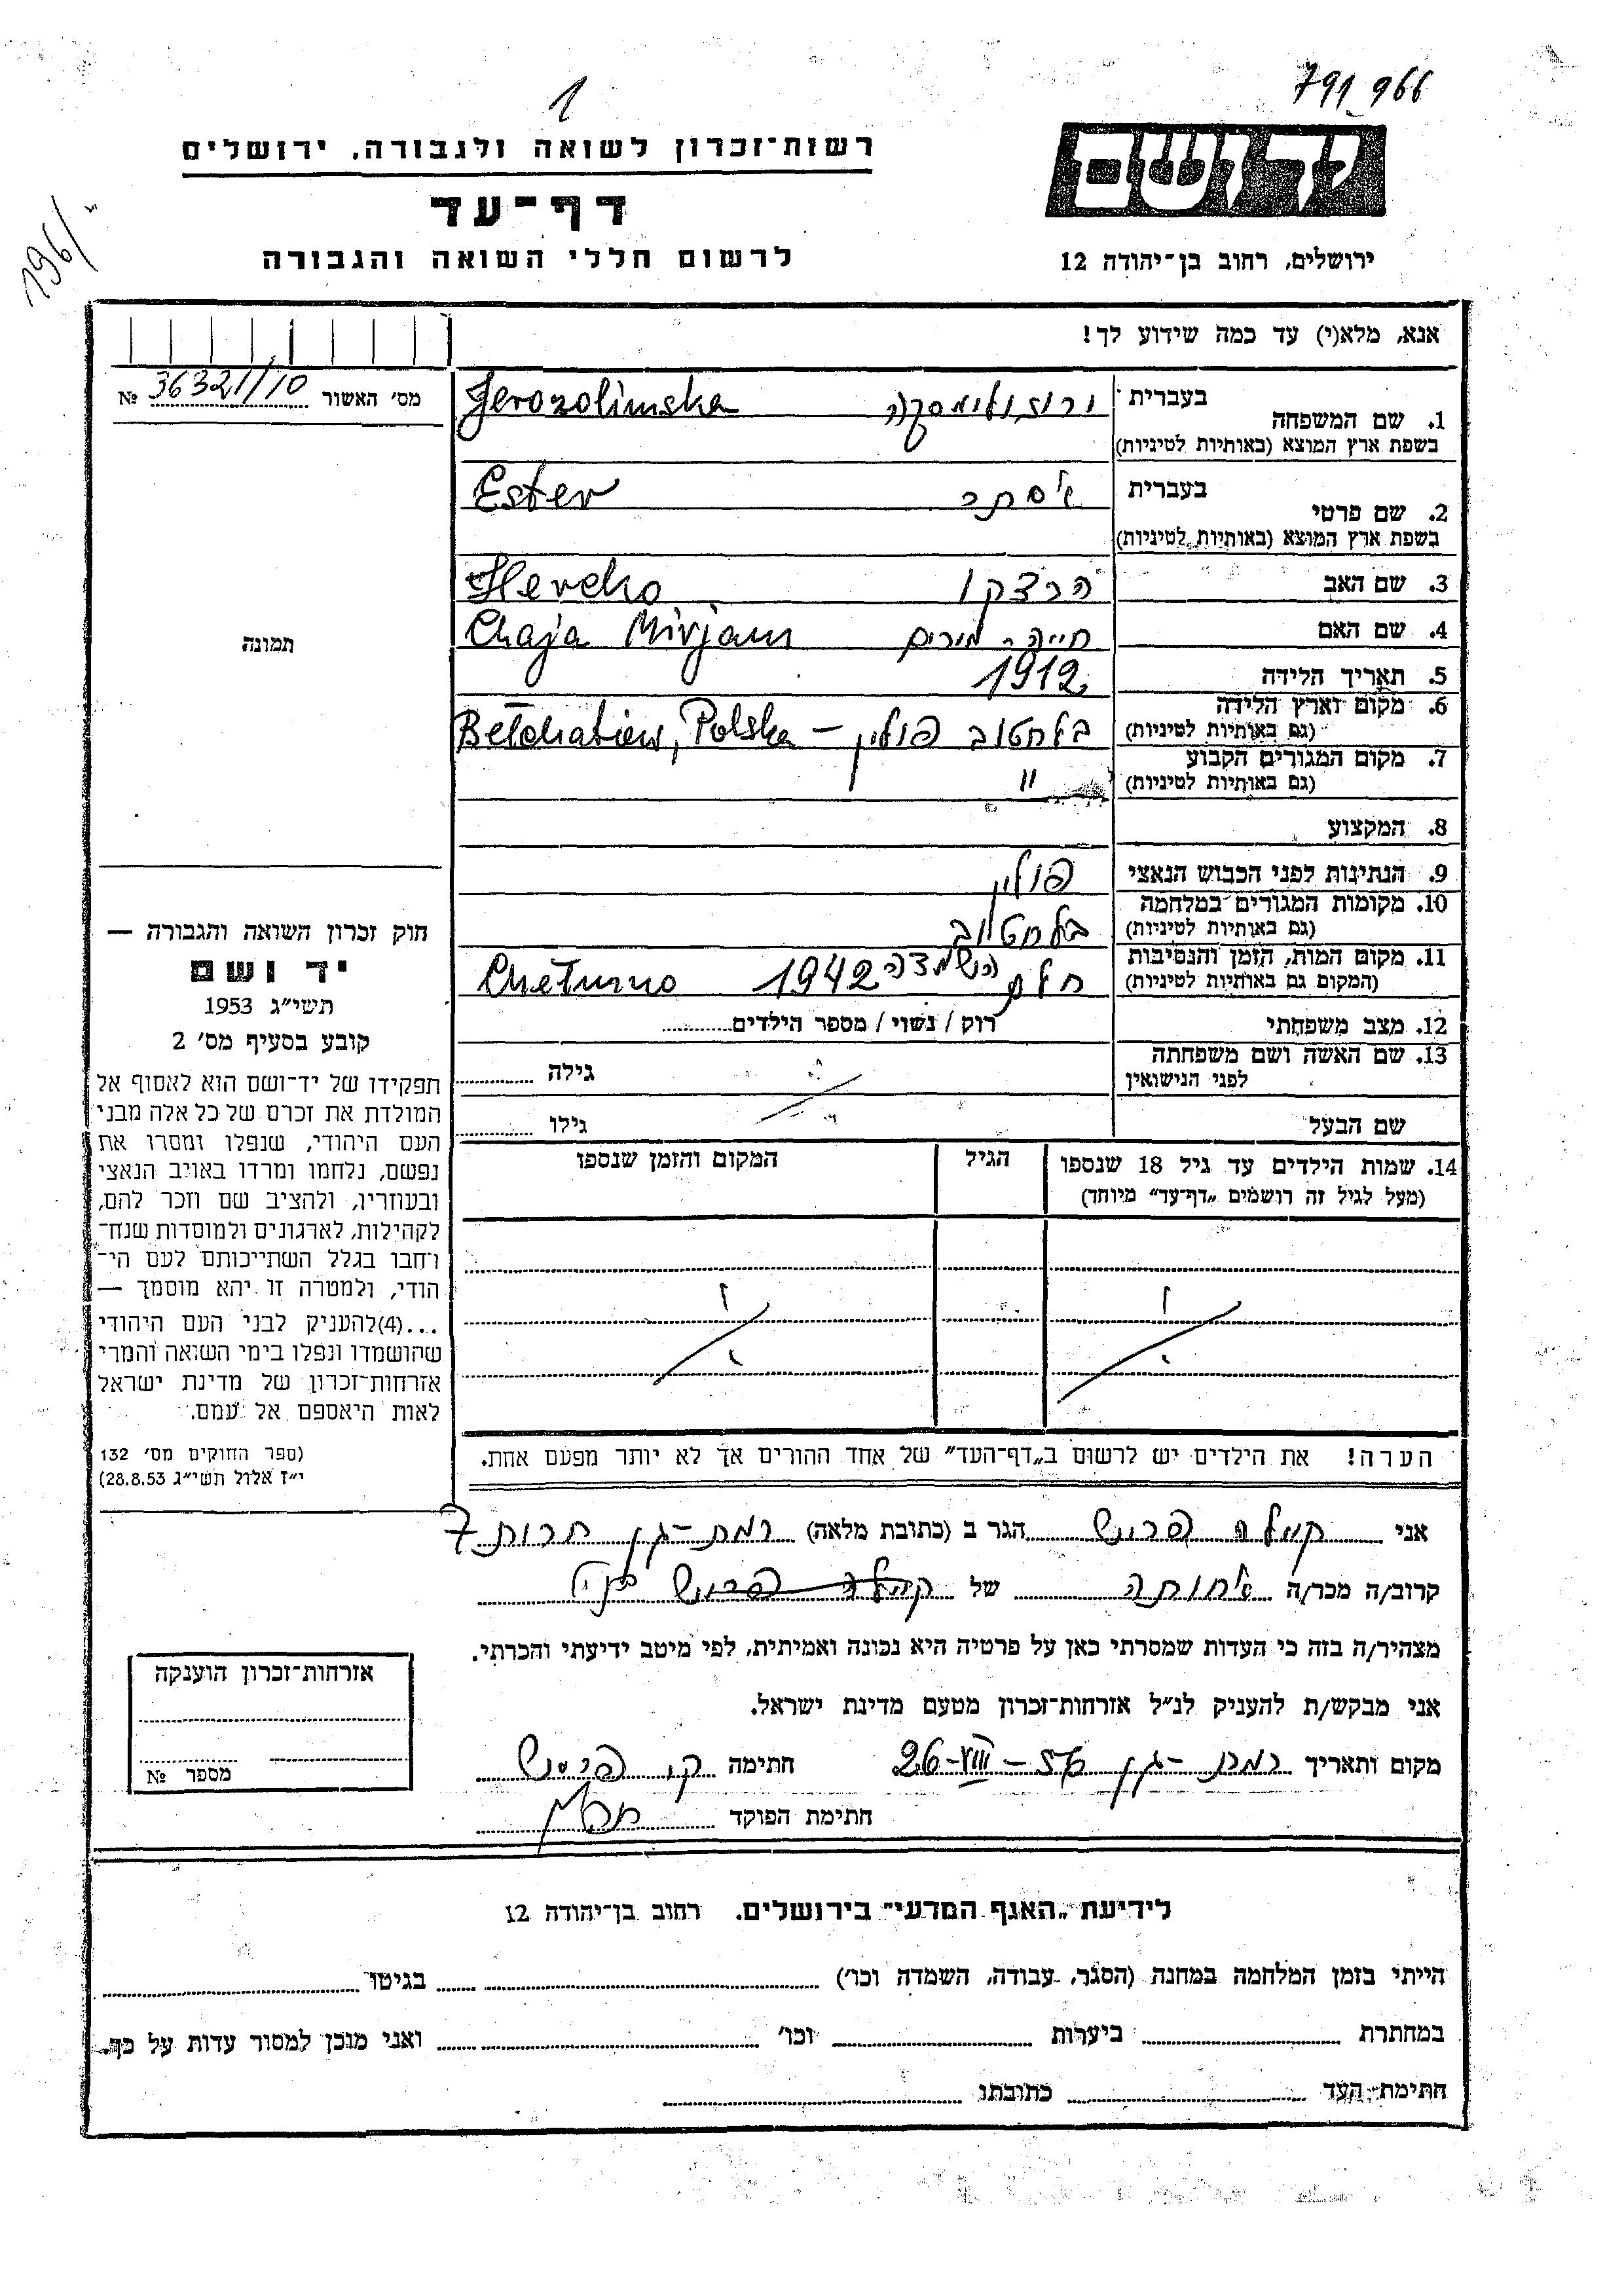 791966
1
196/
יד ושם
רשות־זכרון לשואה ולגבורה, ירושלים
דף־עד
לרשום חללי השואה והגבורה
ירושלים, רחוב בן־יהודה 12
אנא, מלא(י) עד כמה שידוע לך!
מס׳ האשור 36321/10 №
תמונה
1. שם המשפחה בעברית ירוזולימסקה Jerozolimska
בשפת ארץ המוצא (באותיות לטיניות)
2. שם פרטי בעברית אסתר Ester
בשפת ארץ המוצא (באותיות לטיניות)
3. שם האב הרצקו Hercko
4. שם האם חייה־מירים Chaja Mirjam
5. תאריך הלידה 1912
6. מקום וארץ הלידה בלחטוב פולין – Bełchatów, Polska
(גם באותיות לטיניות)
7. מקום המגורים הקבוע "
(גם באותיות לטיניות)
8. המקצוע
9. הנתינות לפני הכבוש הנאצי פולין
10. מקומות המגורים במלחמה בלחטוב
(גם באותיות לטיניות)
11. מקום המות, הזמן והנסיבות חלם הושמדה 1942 Chełmno
(המקום גם באותיות לטיניות)
12. מצב משפחתי רוק / נשוי / מספר הילדים
13. שם האשה ושם משפחתה גילה
לפני הנישואין
שם הבעל גילו
14. שמות הילדים עד גיל 18 שנספו הגיל המקום והזמן שנספו
(מעל לגיל זה רושמים „דף־עד״ מיוחד)
הערה! את הילדים יש לרשום ב„דף־העד״ של אחד ההורים אך לא יותר מפעם אחת.
חוק זכרון השואה והגבורה —
יד ושם
תשי״ג 1953
קובע בסעיף מס׳ 2
תפקידו של יד־ושם הוא לאסוף אל
המולדת את זכרם של כל אלה מבני
העם היהודי, שנפלו ומסרו את
נפשם, נלחמו ומרדו באויב הנאצי
ובעוזריו, ולהציב שם וזכר להם,
לקהילות, לארגונים ולמוסדות שנח־
רבו בגלל השתייכותם לעם הי־
הודי, ולמטרה זו יהא מוסמך —
...(4)להעניק לבני העם היהודי
שהושמדו ונפלו בימי השואה והמרי
אזרחות־זכרון של מדינת ישראל
לאות היאספם אל עמם.
(ספר החוקים מס׳ 132
י״ז אלול תשי״ג 28.8.53)
אני הגר ב (כתובת מלאה) רמת־גן חרות 7
קרוב/ה מכר/ה אחותה של
מצהיר/ה בזה כי העדות שמסרתי כאן על פרטיה היא נכונה ואמיתית, לפי מיטב ידיעתי והכרתי.
אני מבקש/ת להעניק לנ״ל אזרחות־זכרון מטעם מדינת ישראל.
מקום ותאריך רמת־גן 26-VIII-57 חתימה
חתימת הפוקד
אזרחות־זכרון הוענקה
מספר №
לידיעת „האגף המדעי״ בירושלים. רחוב בן־יהודה 12
הייתי בזמן המלחמה במחנה (הסגר, עבודה, השמדה וכו׳) בגיטו
במחתרת ביערות וכו׳ ואני מוכן למסור עדות על כך.
חתימת העד כתובתו